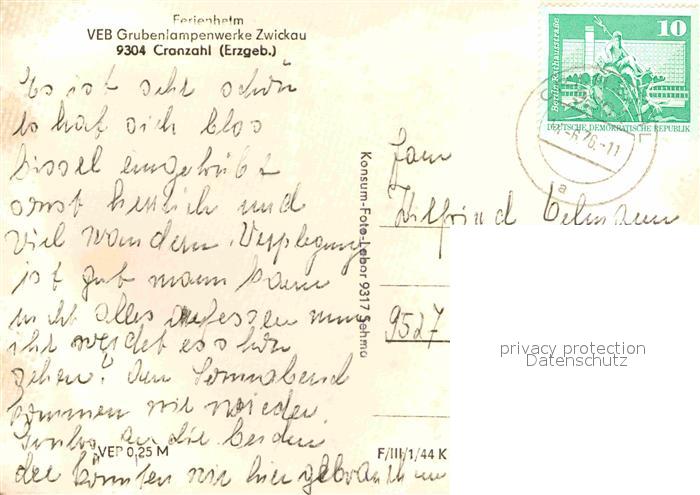 Ferienheim
VEB Grubenlampenwerke Zwickau
9304 Cranzahl (Erzgeb.)
Es ist sehr schön
Es hat sich blos
bissel eingetrübt
sonst herrlich und
viel wandern. Verpflegung
ist gut mann kann
nicht alles aufessen nun
ihr werdet es schon
sehen! Den Sonnabend
kommen wir wieder.
an die beiden
die könnten wir hier gebrauchen
VEP 0,25 M
F/III/1/44 K
Konsum-Foto-Labor 9317 Sehma
10
Berlin, Rathausstraße
DEUTSCHE DEMOKRATISCHE REPUBLIK
6.76.-11
a
Fam
Wilfried
9527
privacy protection
Datenschutz